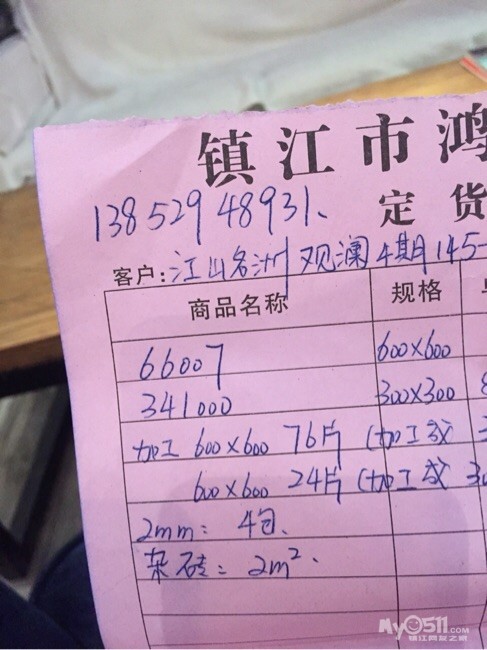 镇江市鸿
13852948931、
定货
客户：江山名洲 观澜 4期145-
商品名称 规格
66007 600×600
341000 300×300 8
加工 600×600 76片 (加工成 3
600×600 24片 (加工成 30
2mm： 4包、
杂砖： 2m²、
My0511.COM
镇江网友之家